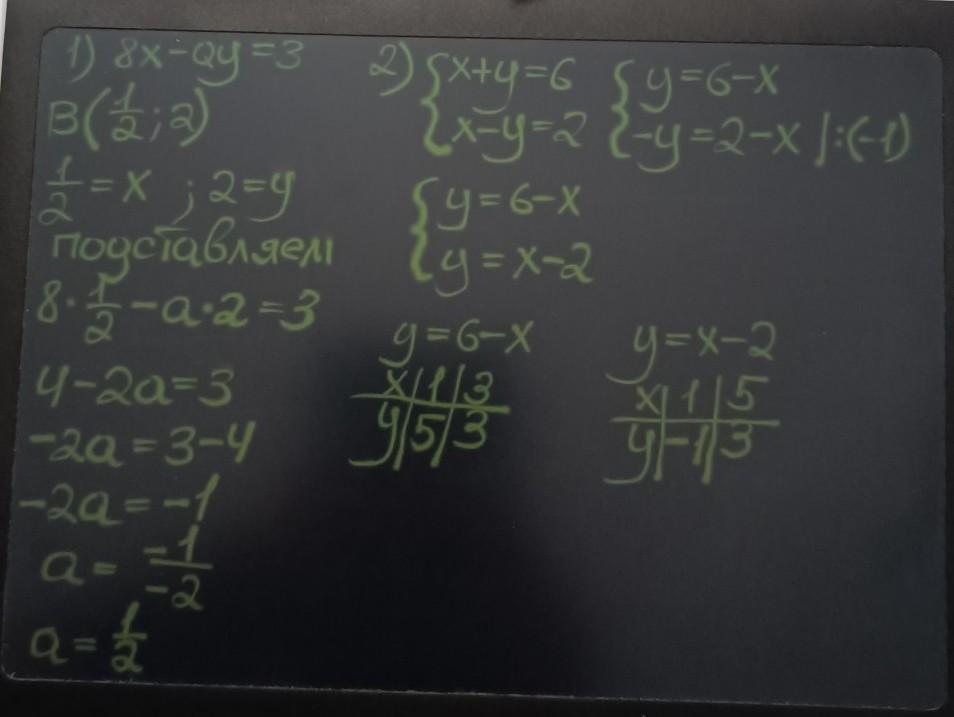 1) 8x-ay=3
B(1/2;2)
1/2=x ; 2=y
подставляем
8·1/2-a·2=3
4-2a=3
-2a=3-4
-2a=-1
a=-1/-2
a=1/2
2) {x+y=6 {y=6-x
{x-y=2 {-y=2-x |:(-1)
{y=6-x
{y=x-2
y=6-x
x|1|3
y|5|3
y=x-2
x|1|5
y|-1|3